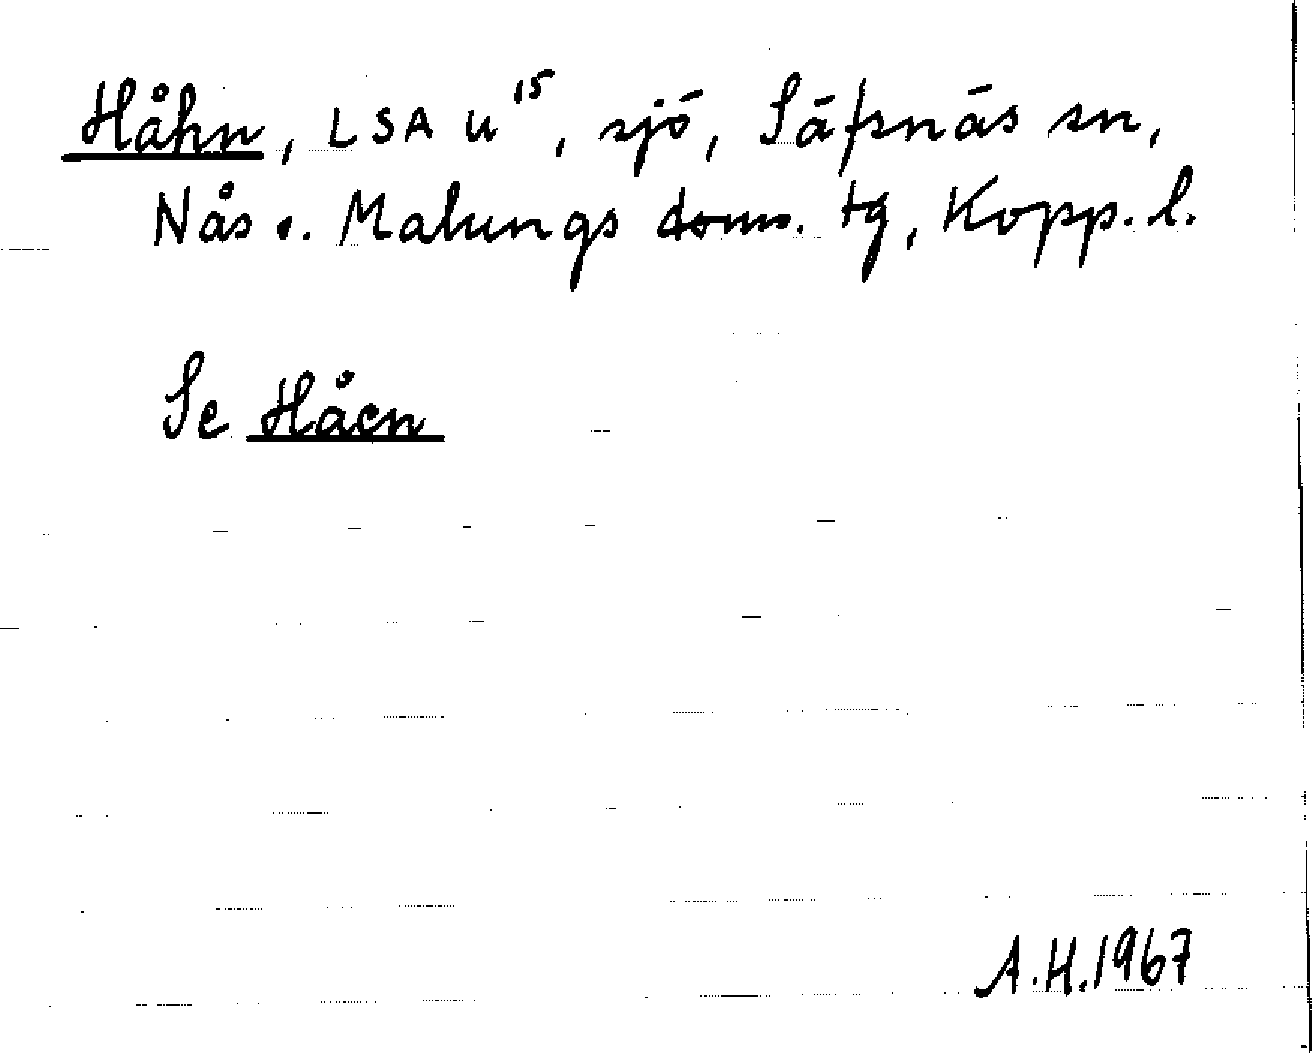 Håhn, LSA u¹⁵, sjö, Säfsnäs sn,
Nås o. Malungs doms. tg, Kopp. l.
Se Håen
A.H. 1967